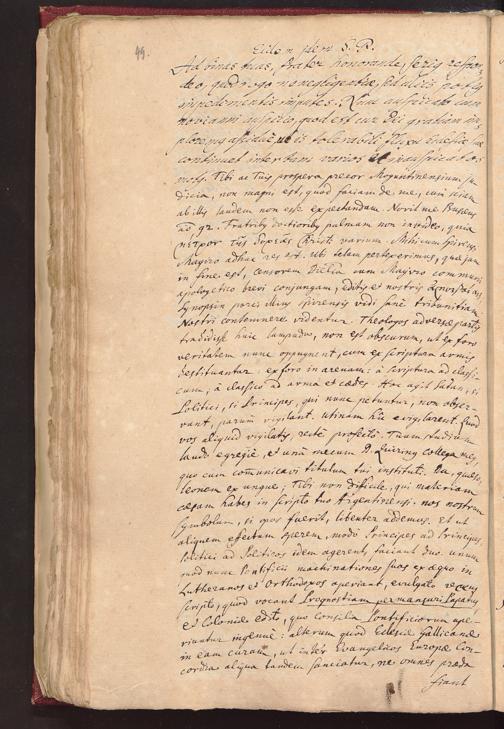 99.
Eidem idem S. P.
Ad binas tuas, frater honorande, serius respon-
deo, quod rogo no negligentiæ, sed
impedimentis imputes. auspicato cum
novi anni auspicio, quod est cur Dei gratiam im-
ploremus assidue, ut is tolerabili Ecclesiæ suæ
continuet inter tam varios et inauspicatos
motus. Tibi ac tuis prospera precor. Moguntinensium ju-
dicia, non magni est, quod faciam de me, cum sciam
ab illis laudem non esse expectandam. Novit me Busæus
Fratribus doctioribus palmam non invideo, quia
μέτρον τῆς δωρεᾶς Christi varium. Mihi cum Spirensi
Magiro adhuc res est. Ubi telam pertexerimus, quæ jam
in fine est, censorem cum Magiro communi
apologetico brevi conjungam, editis et nostris
Synopsin Spirensis vidi sane
Nostri contemnere videntur. Theologos adversæ partis
tradidisse huic lampada, non est obscurum, ut ex foro
veritatem nunc oppugnent, cum ex scriptura armis
destituantur. ex foro in arenam: à scriptura ad classi-
cum, à classico ad arma et cædes. Hoc agit Satan, si
Politici, si Principes, qui nunc petuntur, non obser-
vant, parum vigilant. utinam hic evigilarent. Quod
vos aliquid vigilatis, recte profecto. Tuum studium
laudo egregie, et unà mecum D. collega meus,
quo cum communicavi titulum tui instituti. Da, quæso,
leonem ex ungue: Tibi non difficile, qui materiam
cæsam habes in scripto tuo Argentinensi. nos nostrum
symbolum, si opus fuerit, libenter addemus. Et ut
aliquem effectum sperem, modò Principes ad Principes
Politici ad Politicos idem agerent, faciant duo. unum
quod nunc Pontificii machinationes suas ex æquo in
Lutheranos et Orthodoxos aperiant, evulgato recens
scripto, quod vocant Prognosticum permansuri Papatus
et Coloniæ edito, quo consilia Pontificiorum ape-
riuntur ingenuè: alterum quod Ecclesiæ Gallicanæ
in eam curam, ut inter Evangelicos Europæ Con-
cordia aliqua tandem sanciatur, ne omnes præda
fiant